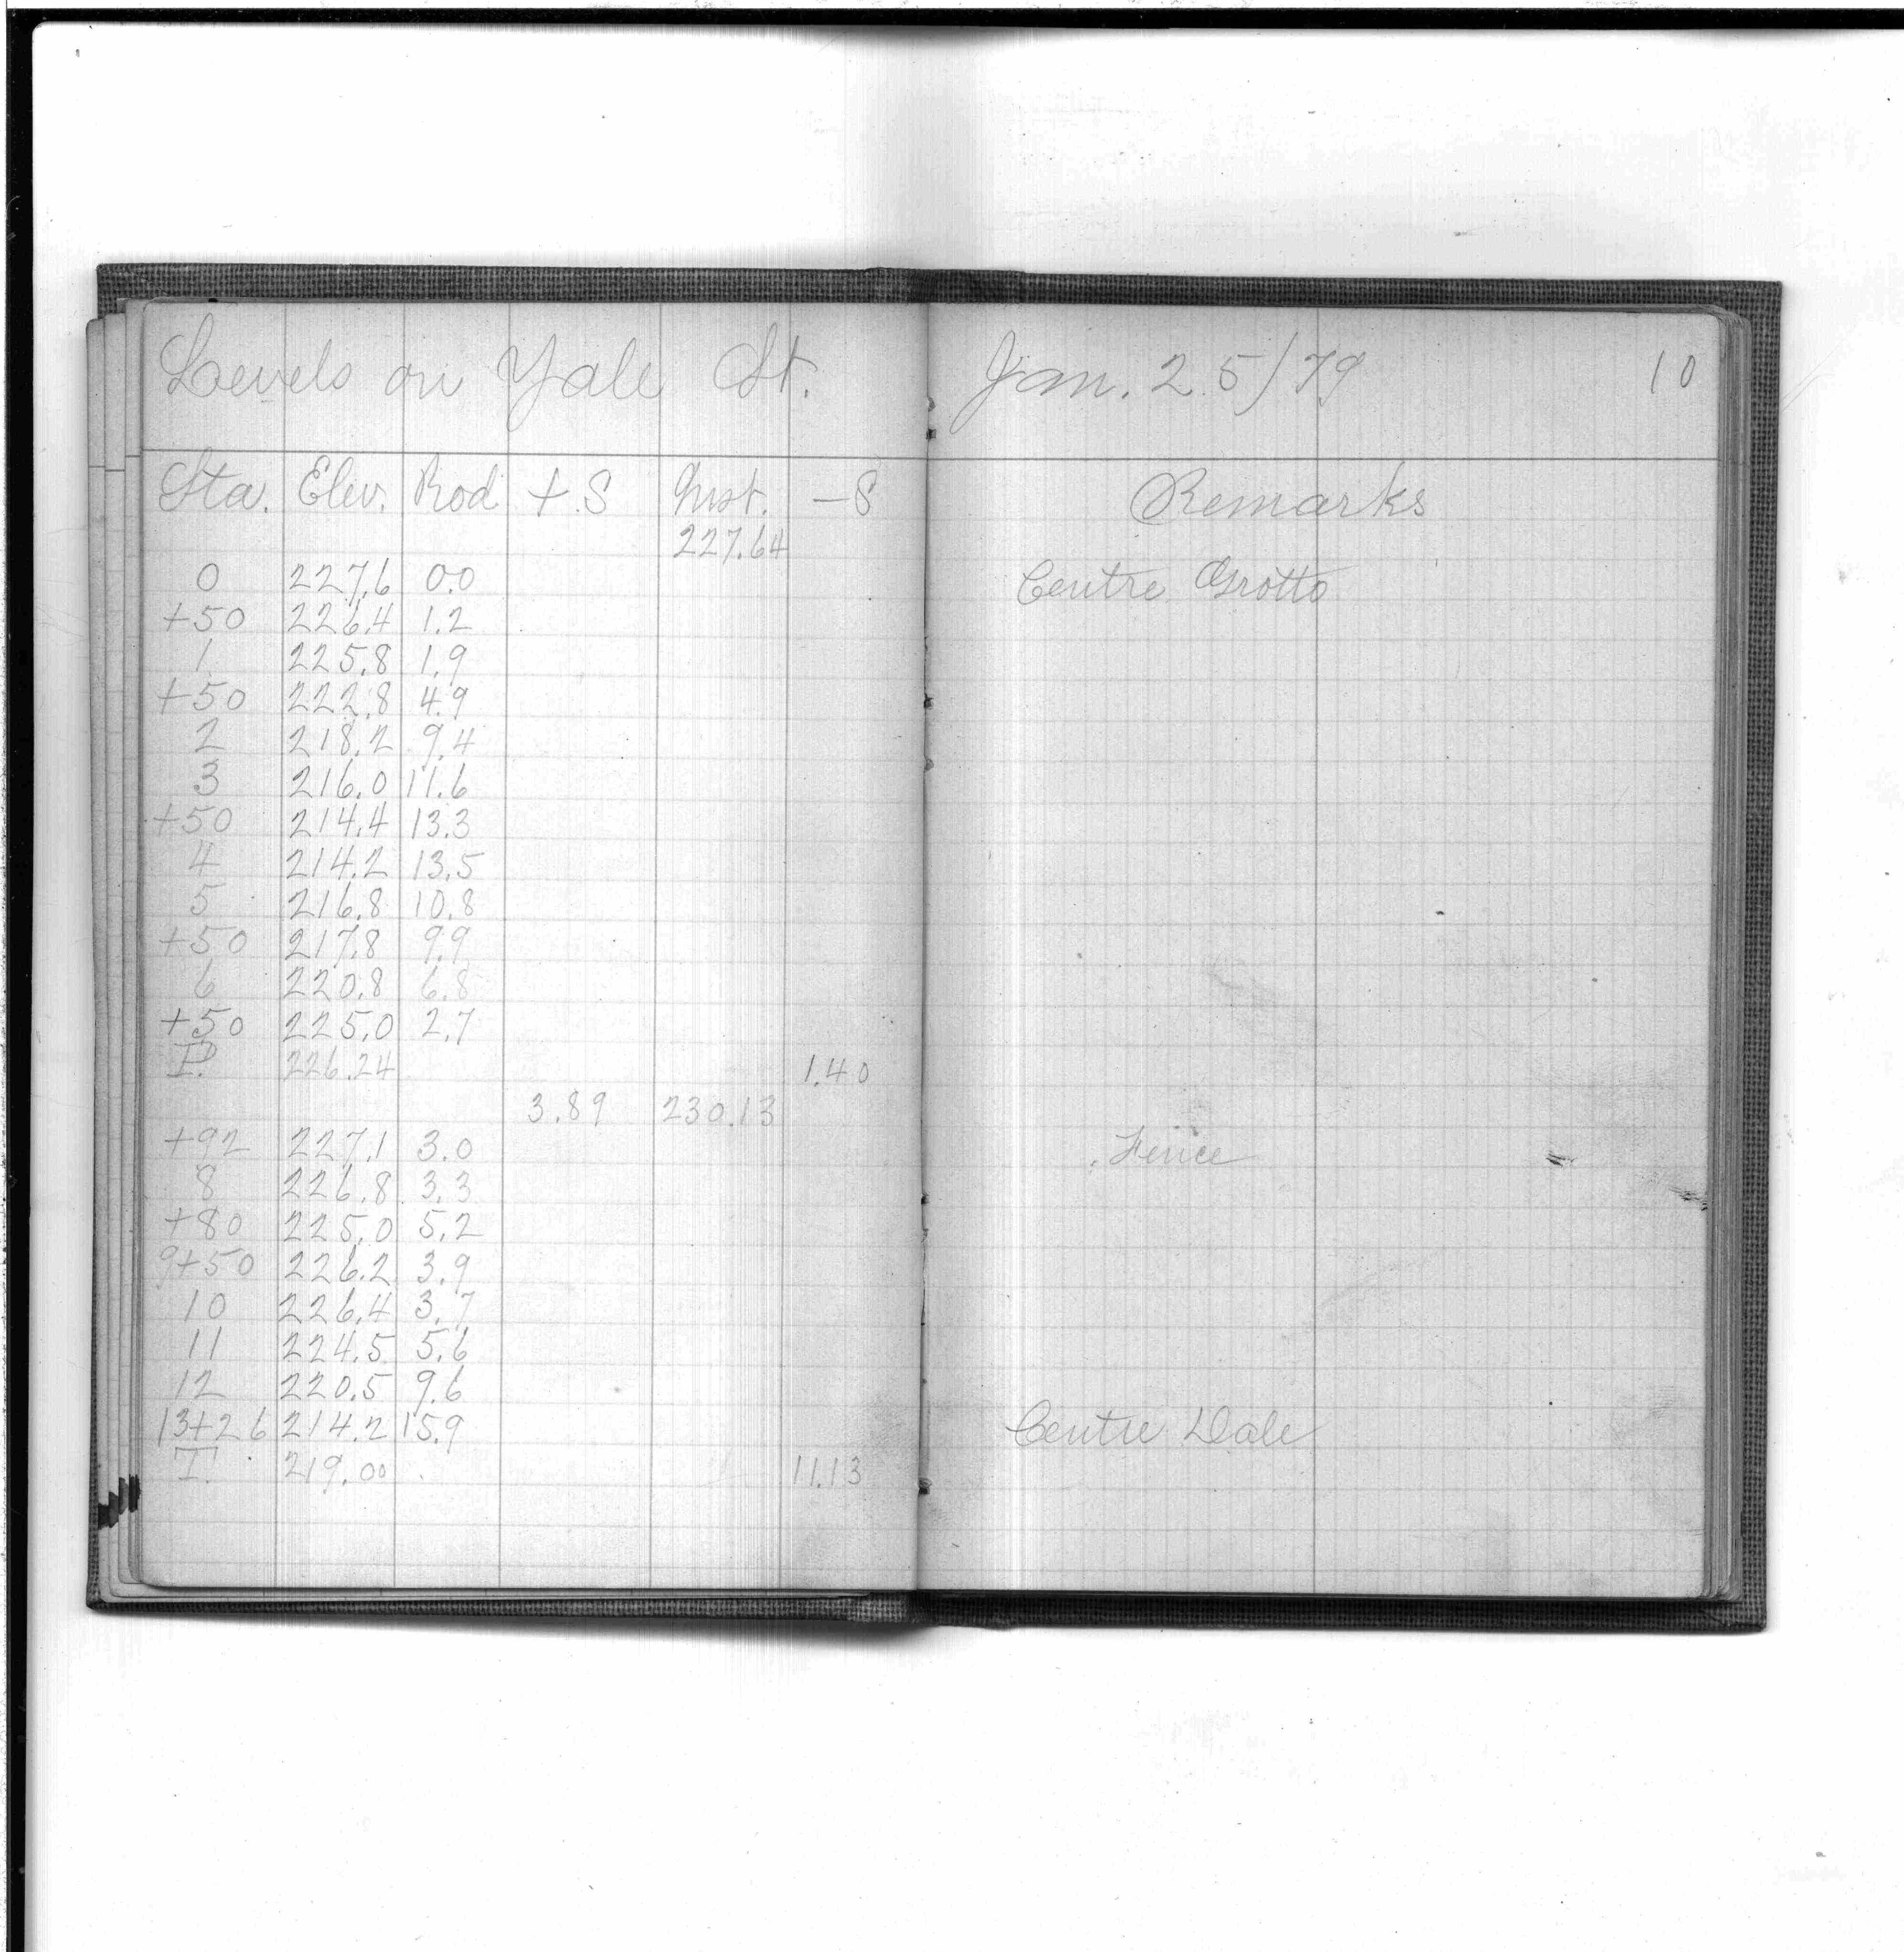 Levels on Yale St. Jan. 25/79 10
Sta. Elev. Rod +.S Inst. -S Remarks
227.64
0 227.6 0.0 Centre Grotto
+50 226.4 1.2
1 225.8 1.9
+50 222.8 4.9
2 218.2 9.4
3 216.0 11.6
+50 214.4 13.3
4 214.2 13.5
5 216.8 10.8
+50 217.8 9.9
6 220.8 6.8
+50 225.0 2.7
226.24 1.40
3.89 230.13
+92 227.1 3.0 Fence
8 226.8 3.3
+80 225.0 5.2
9+50 226.2 3.9
10 226.4 3.7
11 224.5 5.6
12 220.5 9.6
13+26 214.2 15.9 Centre Dale
T. 219.00 11.13